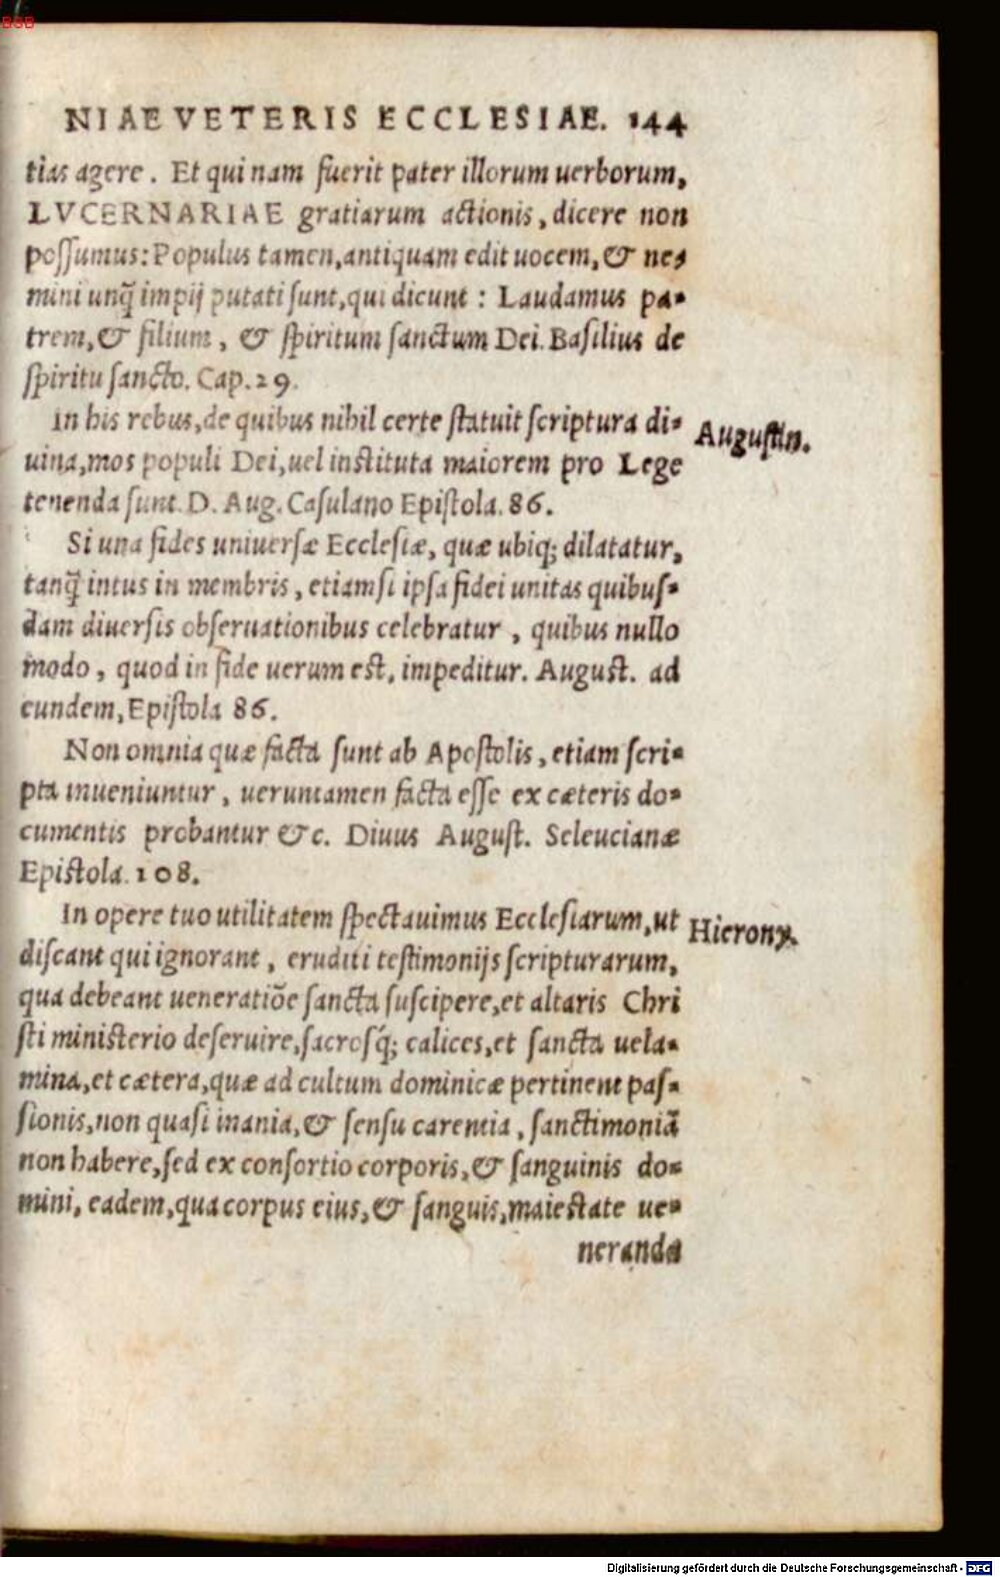 BSB
NIAE VETERIS ECCLESIAE. 144
tias agere. Et qui nam fuerit pater illorum uerborum,
LVCERNARIAE gratiarum actionis, dicere non
poſſumus: Populus tamen, antiquam edit uocem, & ne-
mini unq̃ impij putati ſunt, qui dicunt: Laudamus pa-
trem, & filium, & ſpiritum ſanctum Dei. Baſilius de
ſpiritu ſancto. Cap. 29.
In his rebus, de quibus nihil certe ſtatuit ſcriptura di-
Auguſtin.
uina, mos populi Dei, uel inſtituta maiorem pro Lege
tenenda ſunt. D. Aug. Caſulano Epiſtola. 86.
Si una fides uniuerſæ Eccleſiæ, quæ ubiq; dilatatur,
tanq̃ intus in membris, etiamſi ipſa fidei unitas quibuſ-
dam diuerſis obſeruationibus celebratur, quibus nullo
modo, quod in fide uerum eſt, impeditur. Auguſt. ad
eundem, Epiſtola 86.
Non omnia quæ facta ſunt ab Apoſtolis, etiam ſcri-
pta inueniuntur, ueruntamen facta eſſe ex cæteris do-
cumentis probantur &c. Diuus Auguſt. Seleucianæ
Epiſtola. 108.
In opere tuo utilitatem ſpectauimus Eccleſiarum, ut
Hierony.
diſcant qui ignorant, eruditi teſtimonijs ſcripturarum,
qua debeant ueneratiõe ſancta ſuſcipere, et altaris Chri
ſti miniſterio deſeruire, ſacroſq́; calices, et ſancta uela-
mina, et cætera, quæ ad cultum dominicæ pertinent paſ-
ſionis, non quaſi inania, & ſenſu carentia, ſanctimoniã
non habere, ſed ex conſortio corporis, & ſanguinis do-
mini, eadem, qua corpus eius, & ſanguis, maieſtate ue-
neranda
Digitalisierung gefördert durch die Deutsche Forschungsgemeinschaft - DFG